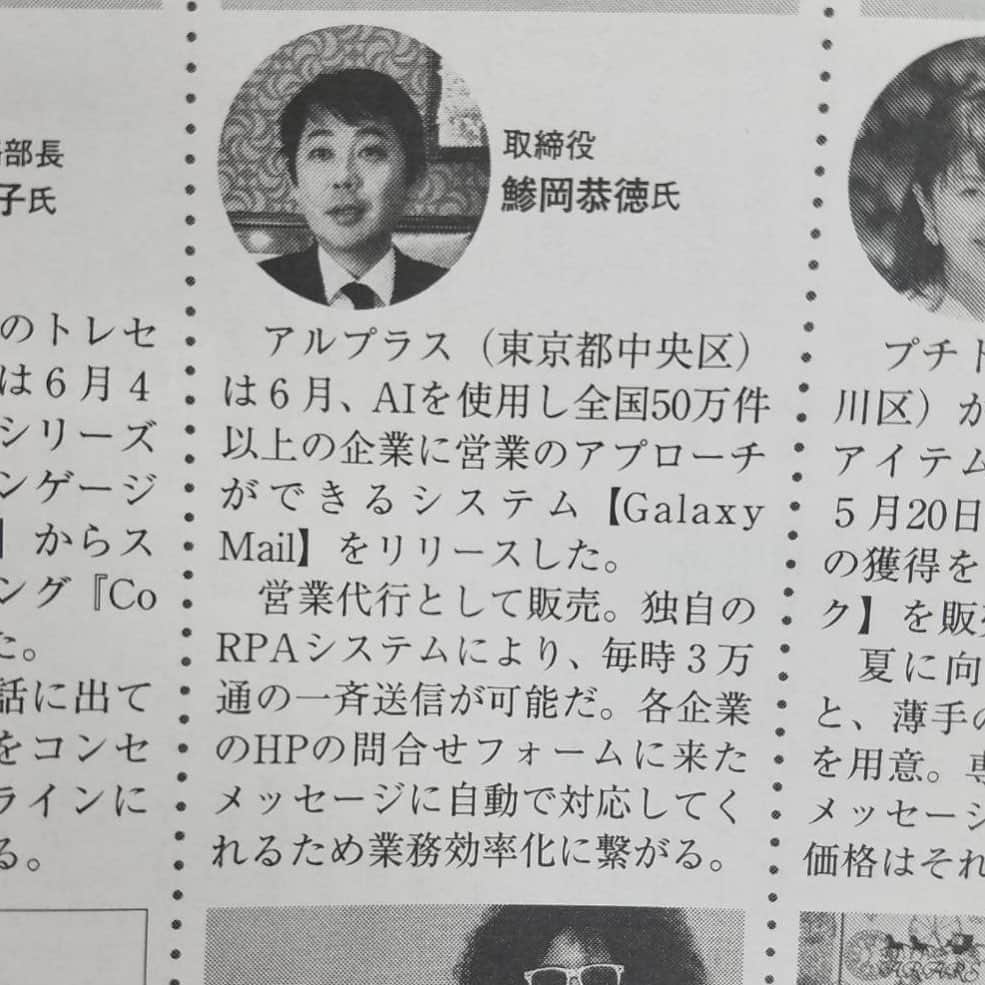 部長
子氏
のトレセ
は６月４
シリーズ
ンゲージ
】からス
ング『Co
た。
話に出て
をコンセ
ラインに
る。
取締役
鯵岡恭徳氏
アルプラス（東京都中央区）
は６月、AIを使用し全国50万件
以上の企業に営業のアプローチ
ができるシステム【Galaxy
Mail】をリリースした。
営業代行として販売。独自の
RPAシステムにより、毎時３万
通の一斉送信が可能だ。各企業
のHPの問合せフォームに来た
メッセージに自動で対応してく
れるため業務効率化に繋がる。
プチ
川区）か
アイテム
５月20日
の獲得を
ク】を販
夏に向
と、薄手の
を用意。
メッセージ
価格はそれ